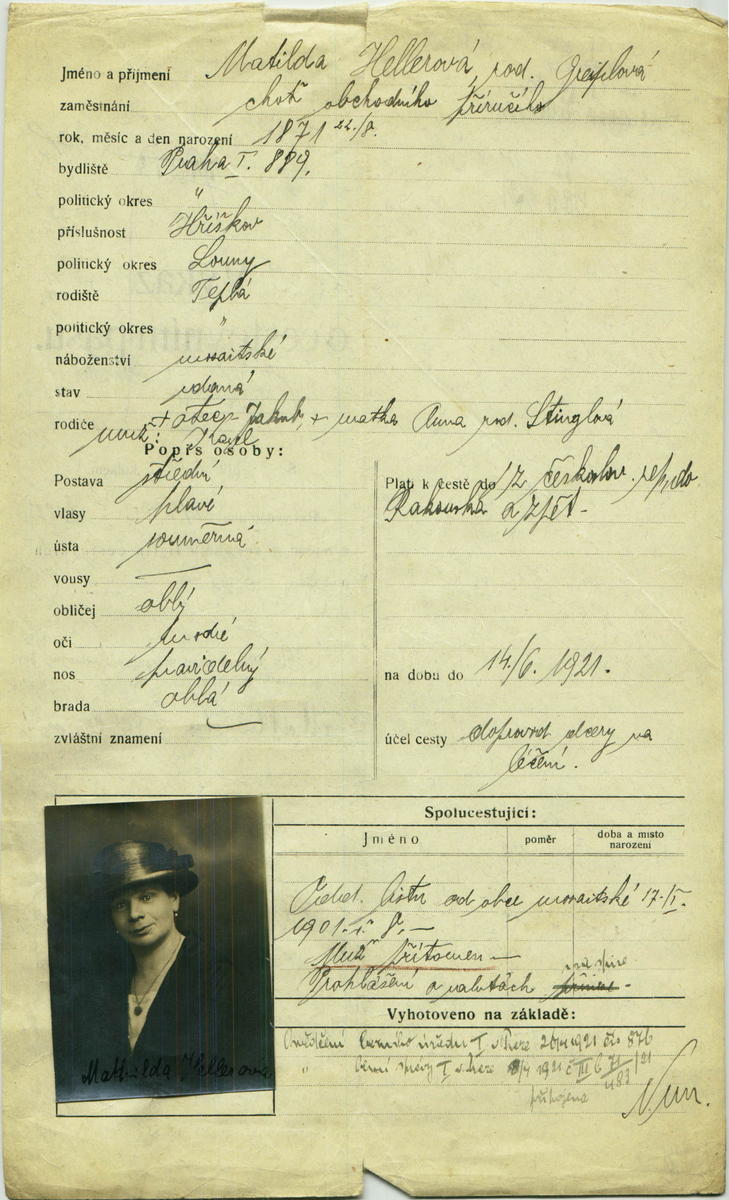 Jméno a přijmení Matilda Hellerová, rod.
zaměstnání choť obchodního příručího
rok, měsíc a den narození 1871 22./8.
bydliště Praha I. 889.
politický okres "
příslušnost Hříškov
politický okres Louny
rodiště Teplá
politický okres "
náboženství mosaitské
stav vdaná
rodiče + otec Jakub, + matka Anna rod. Stinglová
muž: Karel
Popis osoby:
Postava střední
vlasy plavé
ústa souměrná
vousy —
obličej oblý
oči modré
nos pravidelný
brada oblá
zvláštní znamení
Platí k cestě do/z českoslov. rep. do
Rakouska a zpět.-
na dobu do 14./6. 1921.
účel cesty doprovod dcery na
léčení.
Spolucestující:
Jméno poměr doba a místo
narození
Oddd. listu od obce mosaitské 17.
1901. č. 8. —
Muž přítomen —
Prohlášení o valutách
Vyhotoveno na základě:
Osvědčení berního úřadu I v Praze 26/4 1921 čís 876
" berní správy I v Praze 1921 č III 6 71/21
připojena
Mathilda Hellerova